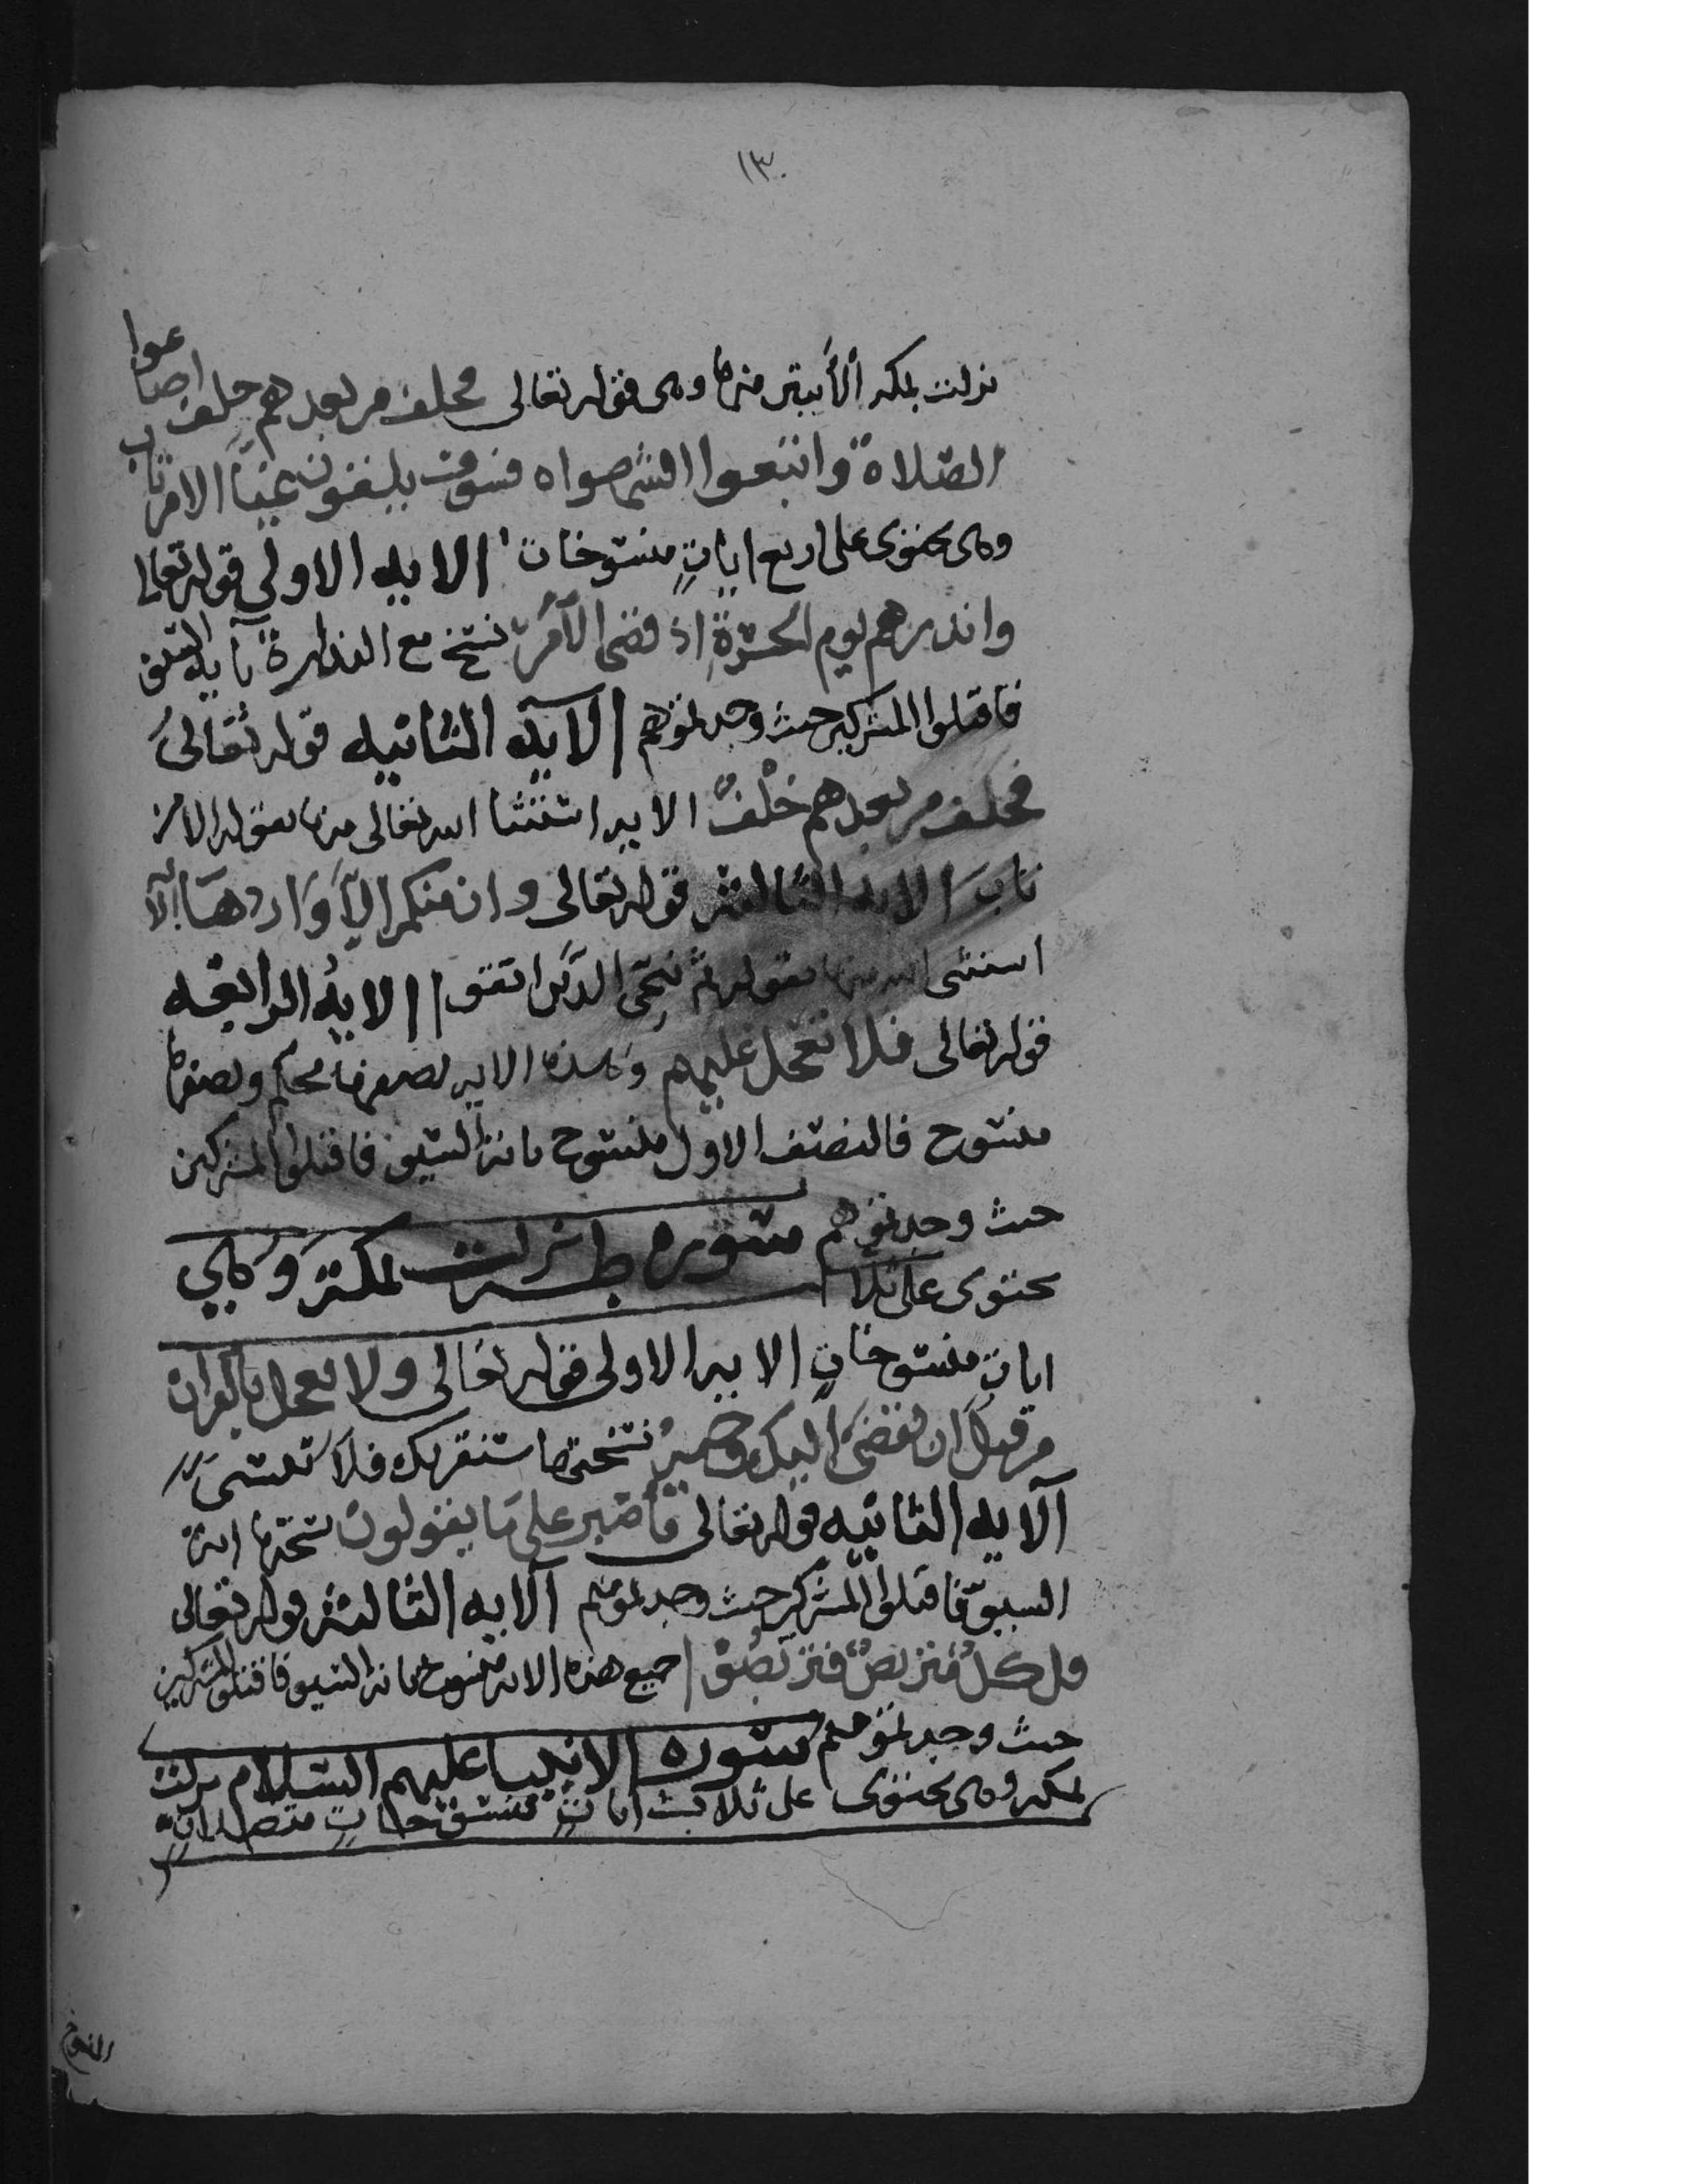 ١٣٠
نزلت بمكه الا ايتين منها وهى قوله تعالى فخلف من بعدهم خلف اضاعوا
الصلاة واتبعوا الشهواه فسوف يلقون غيا الا من تاب
وهى تحتوى على اربع ايات منسوخات الايه الاولى قوله تعالى
وانذرهم يوم الحسرة اذ قضى الامر نسخ مع النذارة باية السيف
فاقتلوا المشركين حيث وجدتموهم الايه الثانيه قوله تعالى
فخلف من بعدهم خلف الايه استثنا الله تعالى منها بقوله الا من
تاب الايه الثالثه قوله تعالى وان منكم الا واردها
استثنى الله منها بقوله ثم ننجى الذين اتقوا الايه الرابعه
قوله تعالى فلا تعجل عليهم وهذه الايه نصفها محكم ونصفها
منسوخ فالنصف الاول منسوخ باية السيف فاقتلوا المشركين
حيث وجدتموهم سوره طه نزلت بمكة وهي
تحتوى على ثلاث
ايات منسوخات الايه الاولى قوله تعالى ولا تعجل بالقران
من قبل ان يقضى اليك وحيه نسختها سنقريك فلا تنسى
الايه الثانيه قوله تعالى فاصبر على ما يقولون نسختها اية
السيف فاقتلوا المشركين حيث وجدتموهم الايه الثالثه قوله تعالى
قل كل متربص فتربصوا جميع هذه الايه منسوخ باية السيف فاقتلوا المشركين
حيث وجدتموهم سوره الانبيا عليهم السلام نزلت
بمكه وهى تحتوى على ثلاث ايات منسوخات متصلات